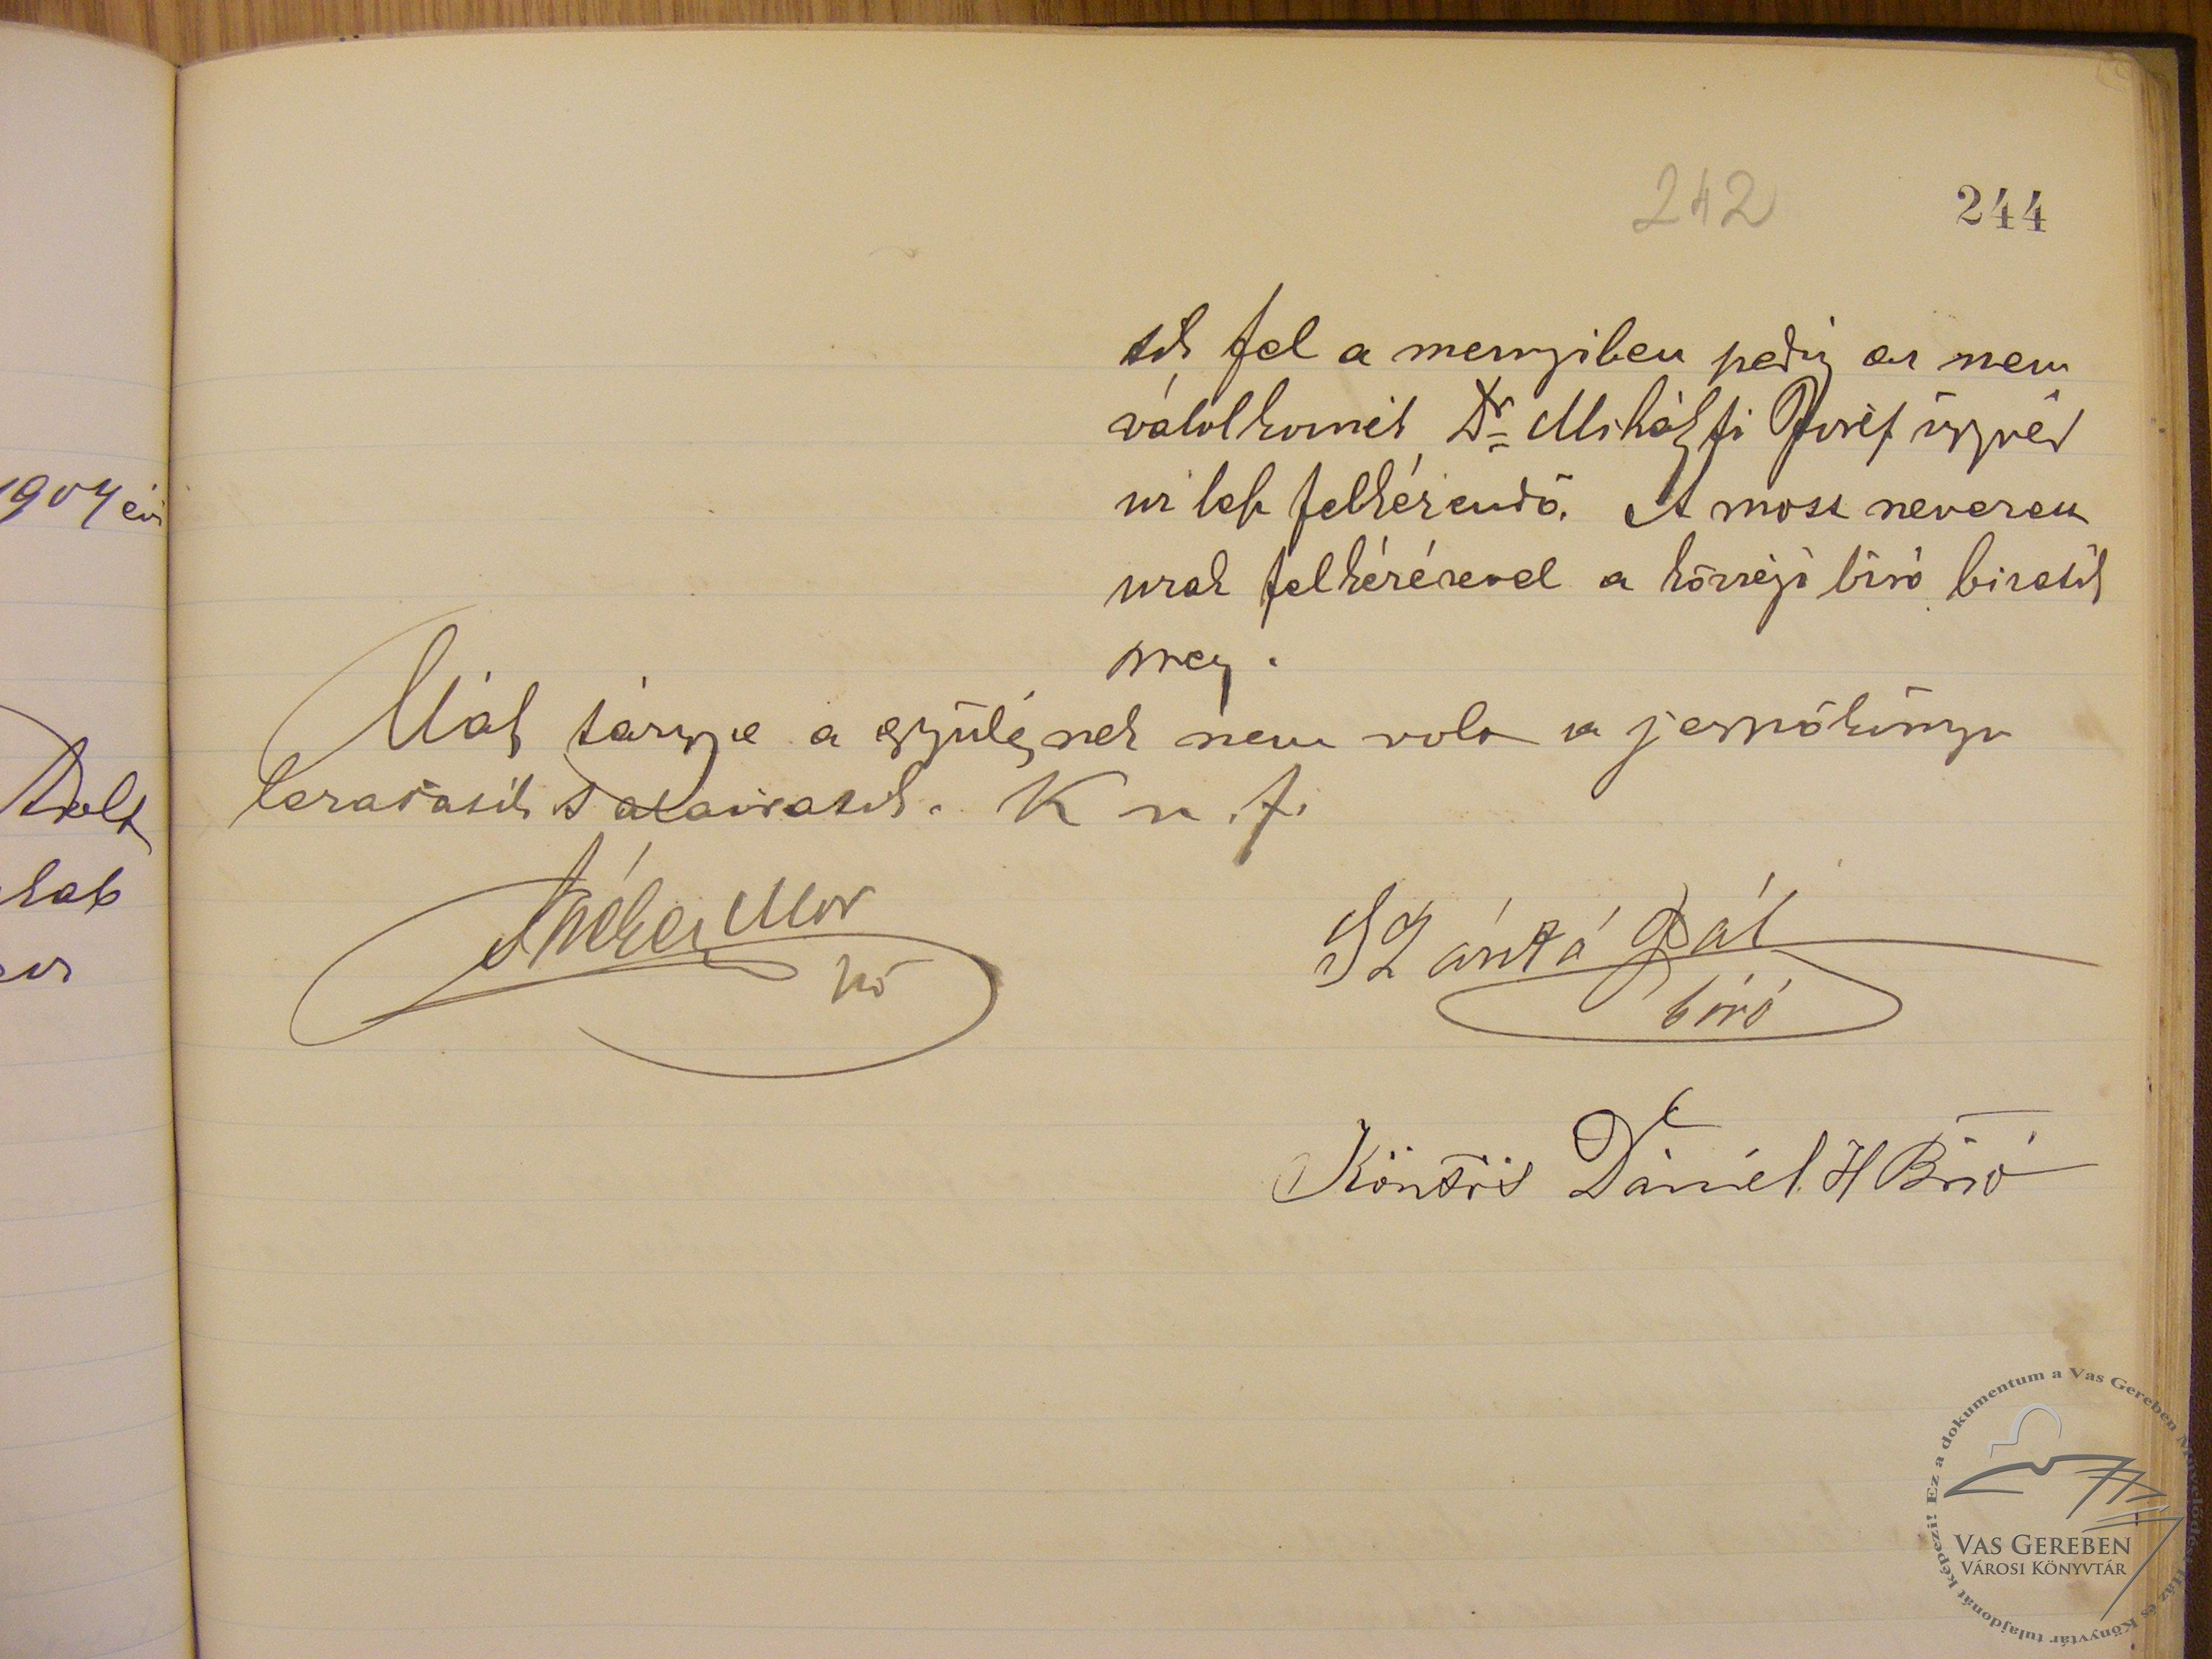 1904 évi
242
244
tik fel a mennyiben pedig az nem
válolkoznék Dr Mihályfi József ügyvéd
ur lesz felkérendő. A most nevezett
urak felkérésével a községi biró bizatik
meg.
Más tárgya a gyülésnek nem volt a jegyzőkönyv
lezáratik s aláiratik. K m. f.
Mór
Szántó Pál
biró
Köntös Dániel H Biró
Ez a dokumentum a Vas Gereben Művelődési Ház és Könyvtár tulajdonát képezi!
VAS GEREBEN
VÁROSI KÖNYVTÁR